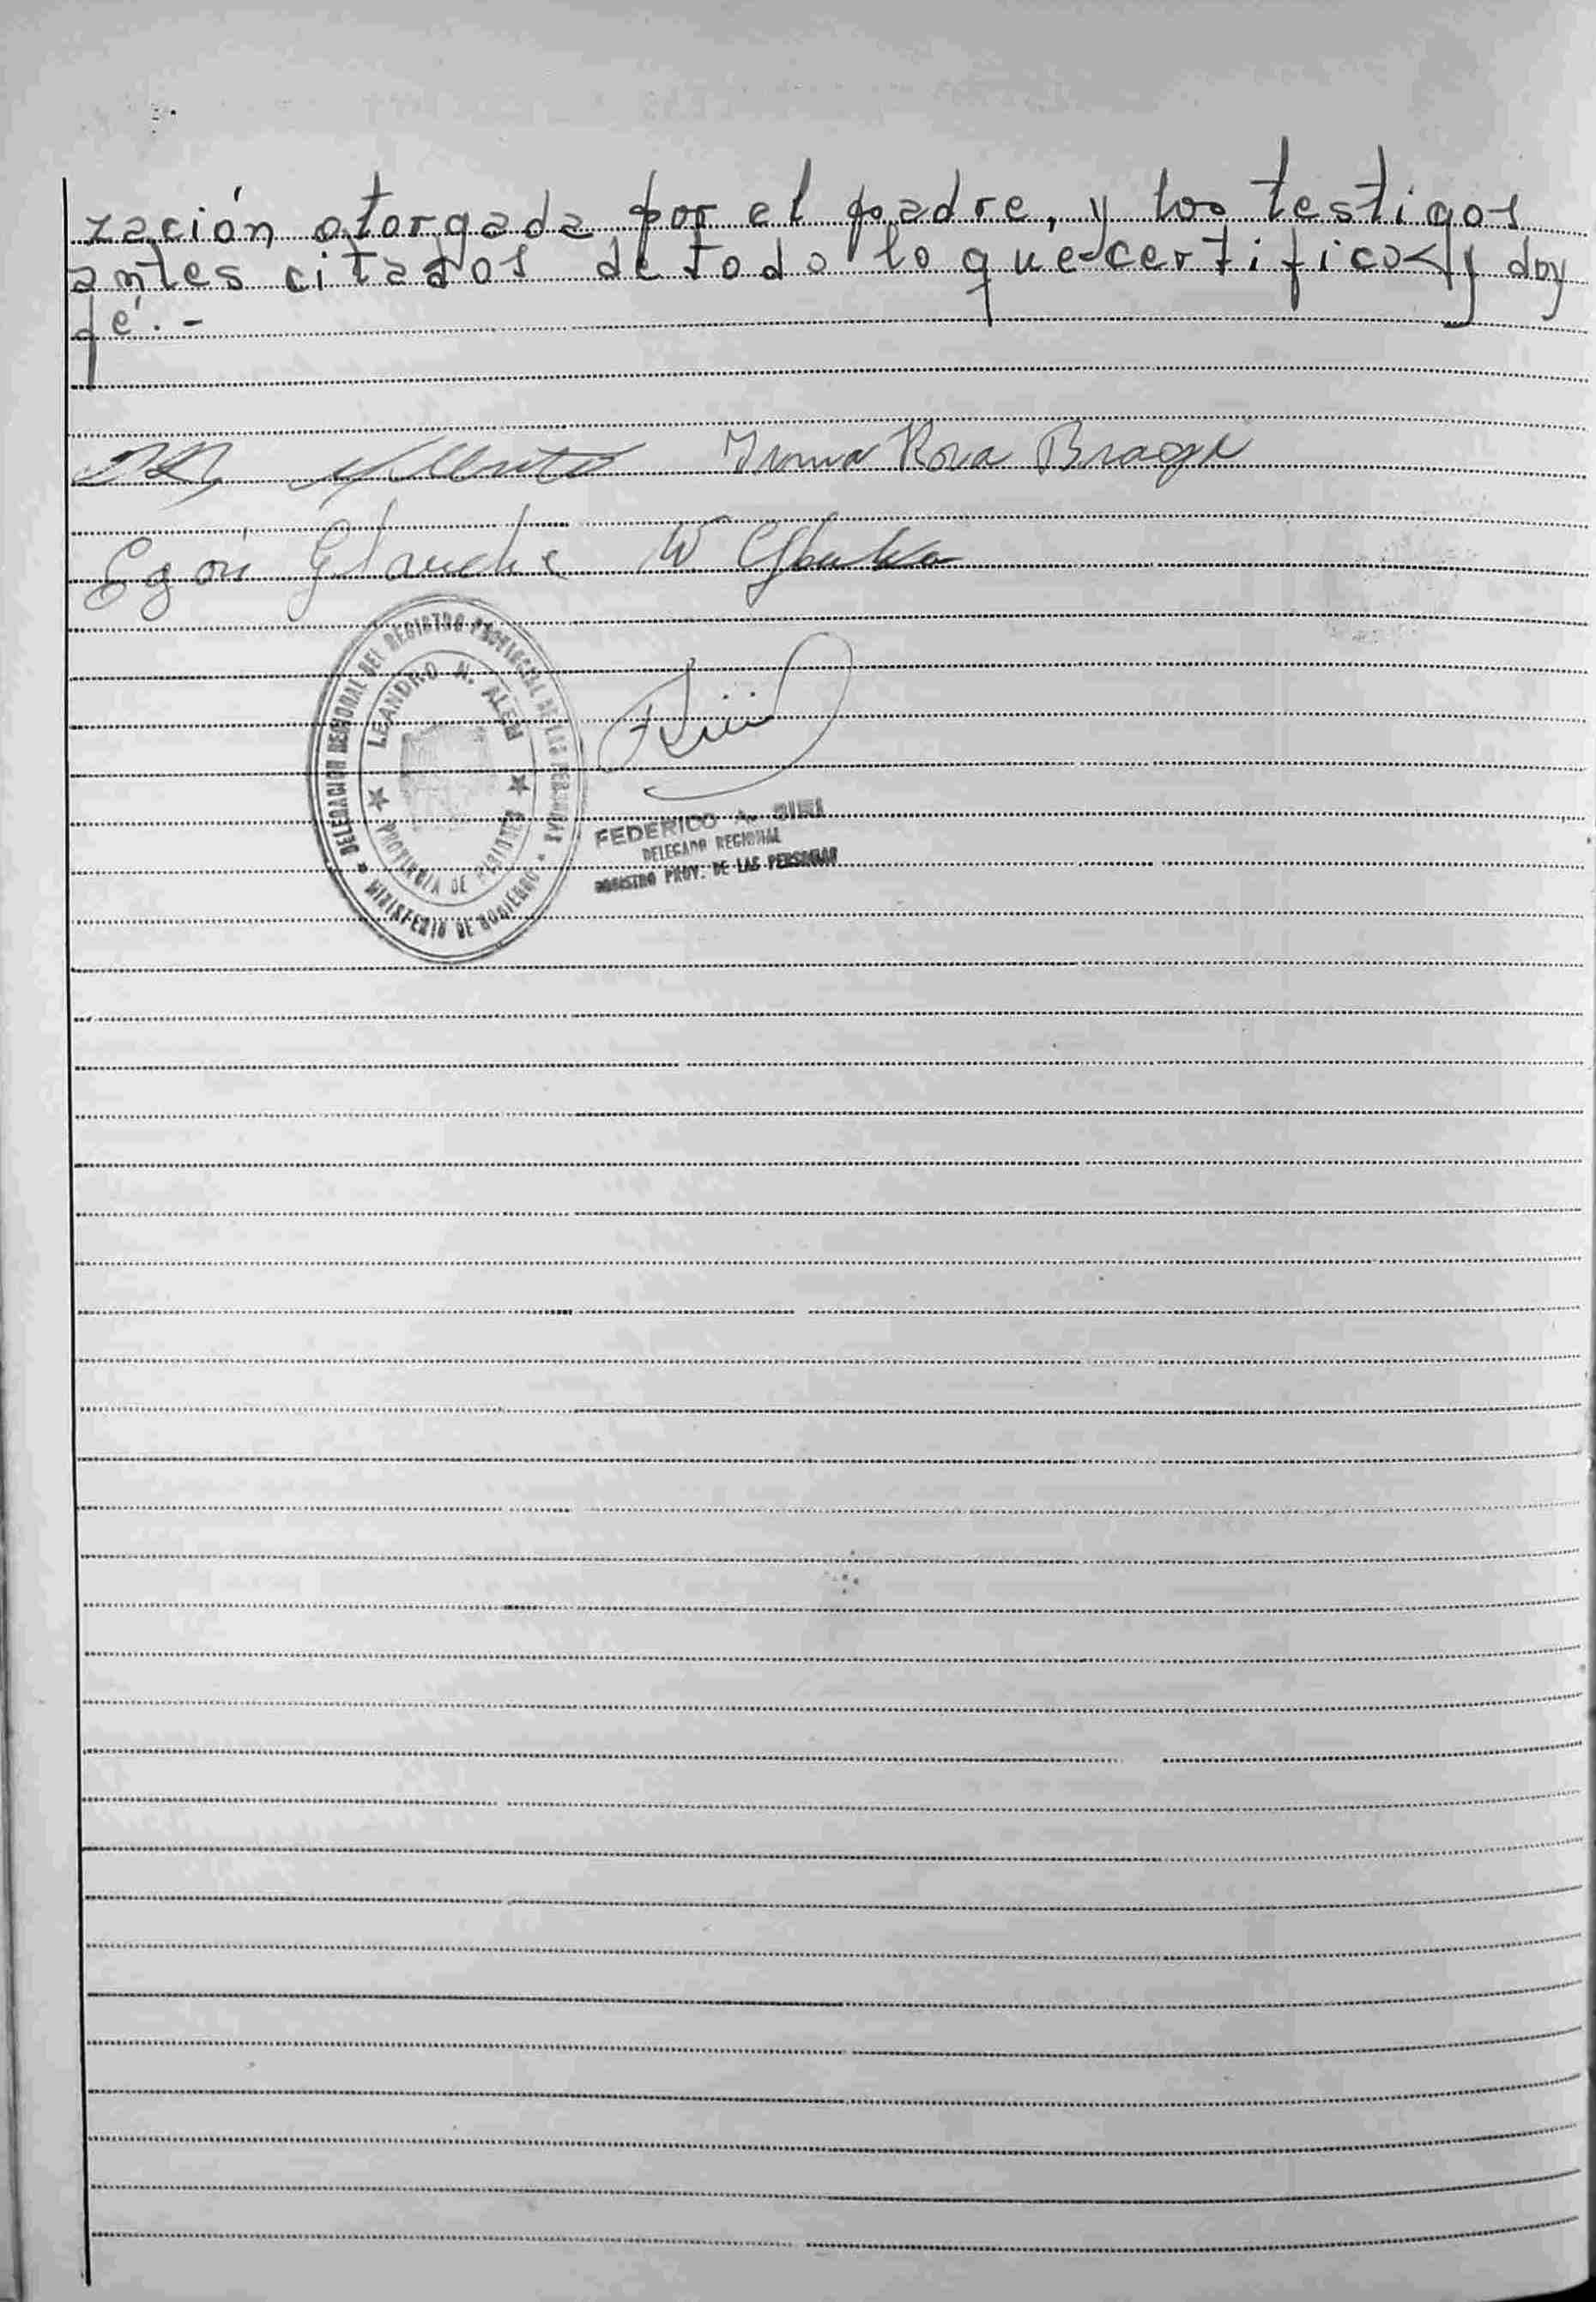 zación otorgada por el padre, y los testigos
antes citados de todo lo que certifico y doy
fé.-
Irma Rosa Braga
Egon
W
DELEGACION REGIONAL DEL REGISTRO PROVINCIAL DE LAS PERSONAS
LEANDRO N. ALEM
PROVINCIA DE MISIONES
MINISTERIO DE GOBIERNO
FEDERICO A.
DELEGADO REGIONAL
REGISTRO PROV. DE LAS PERSONAS